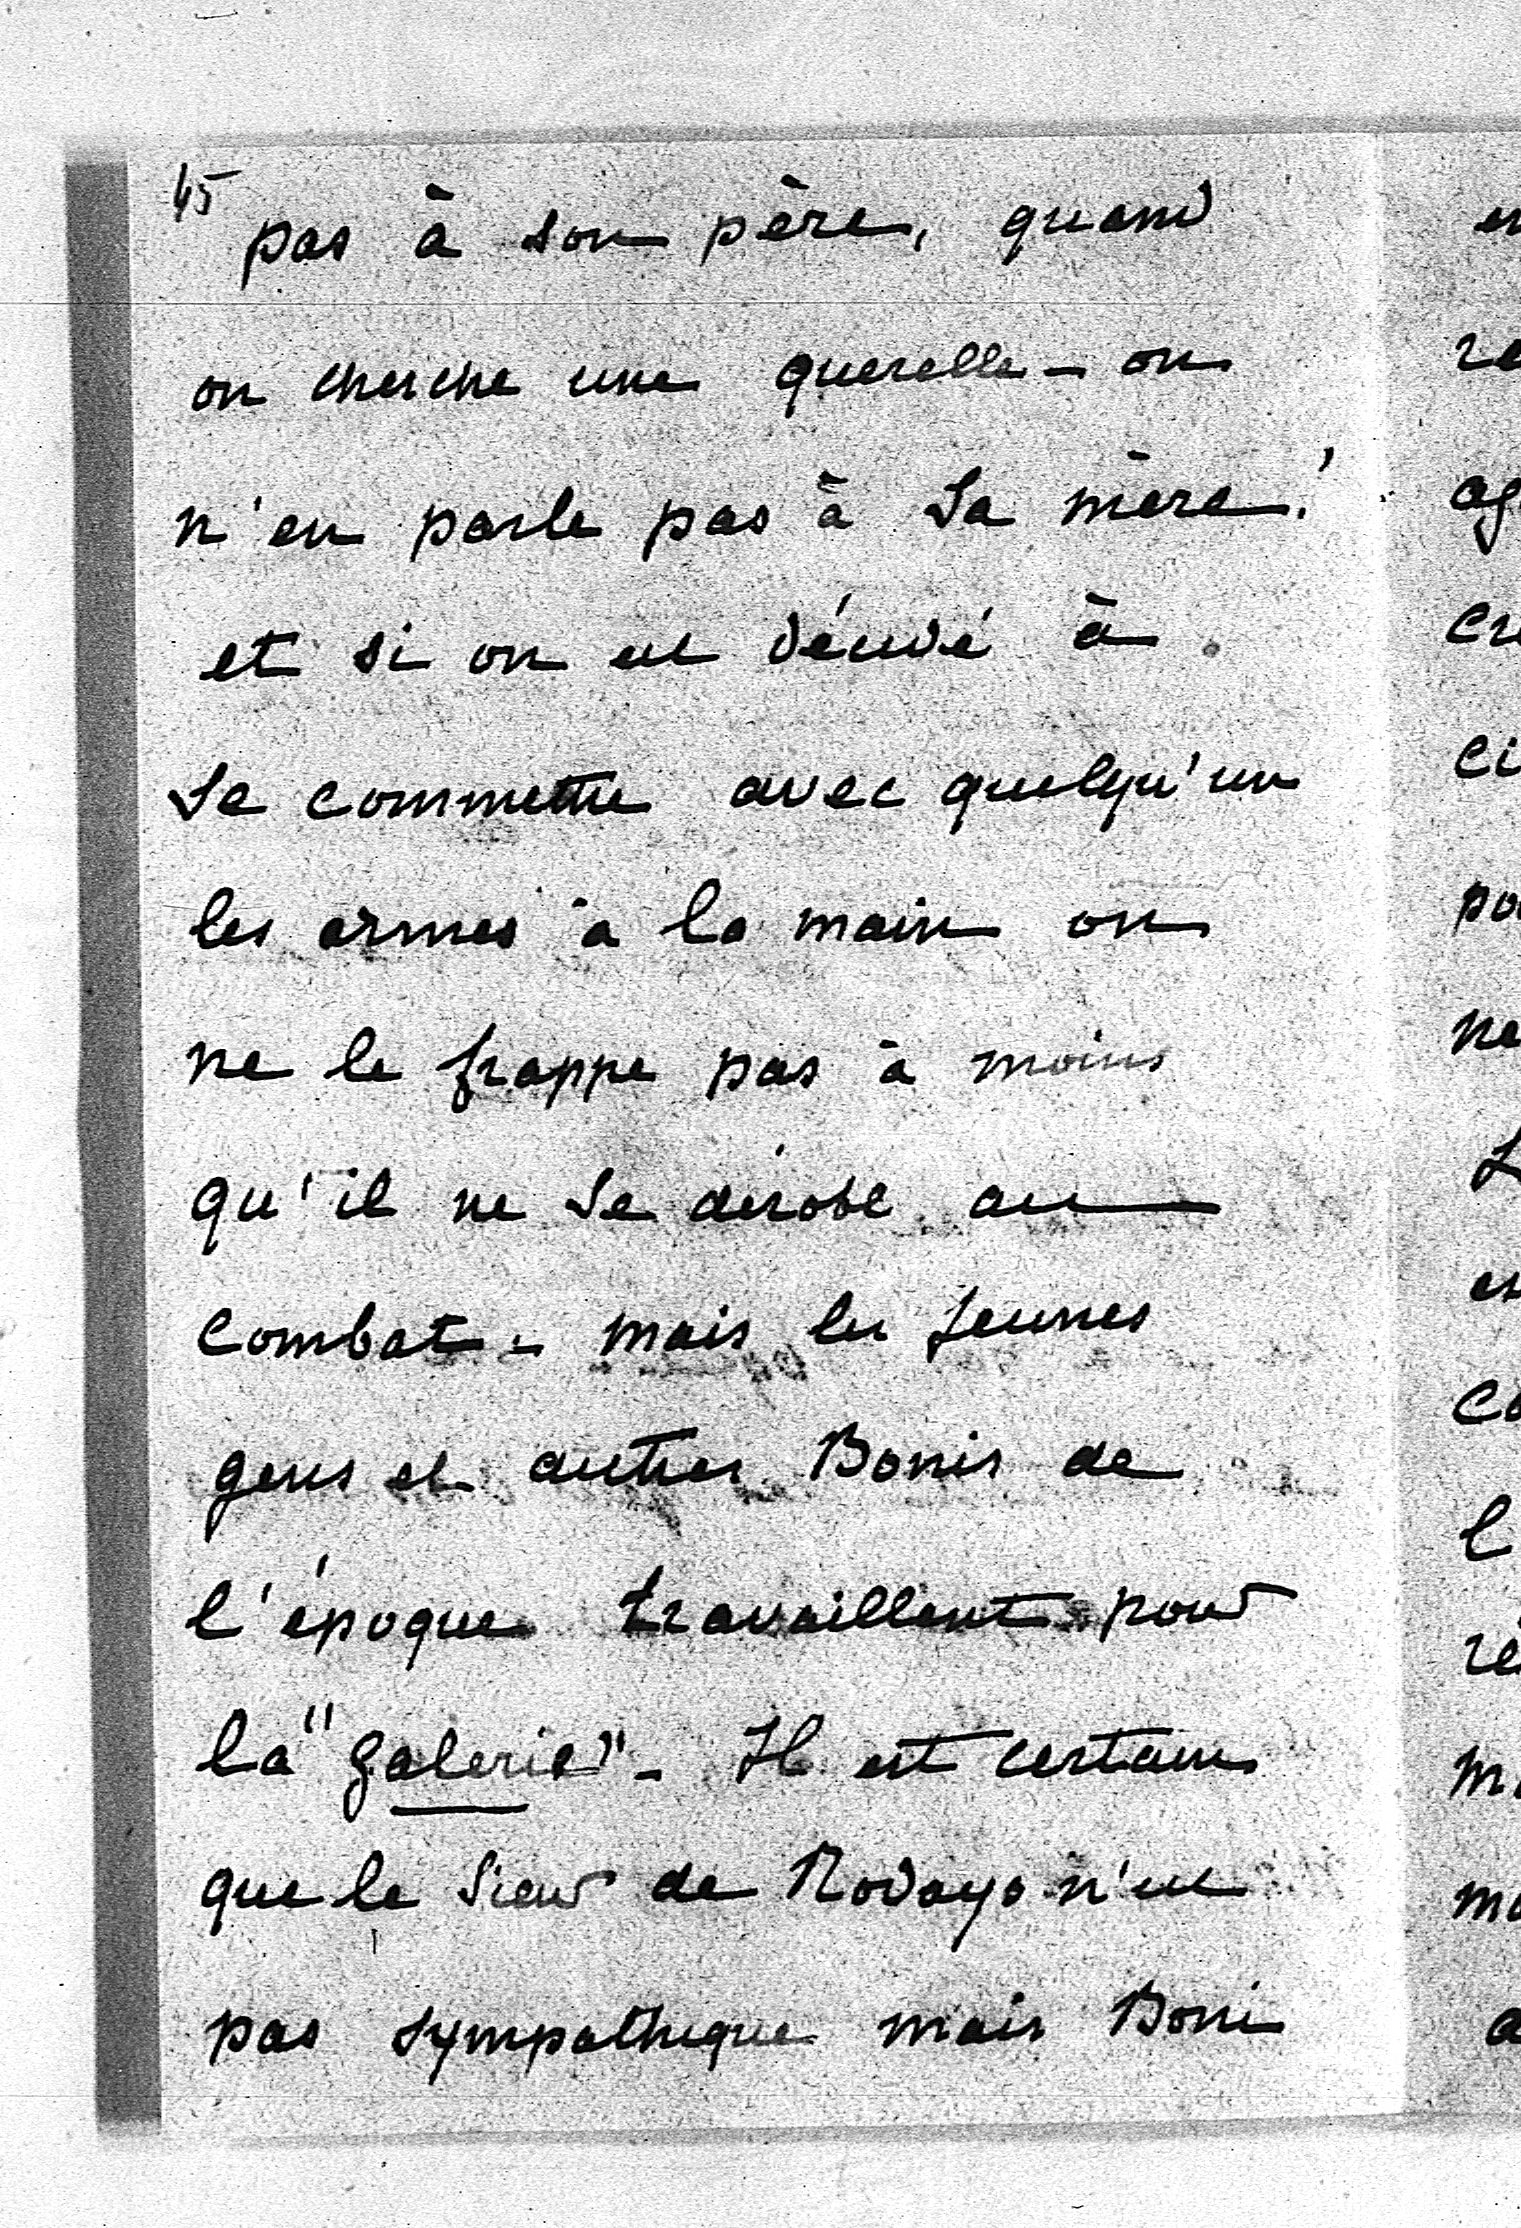 45
pas à son père, quand
on cherche une querelle - on
n'en parle pas à sa mère!
et si on est décidé à
se commettre avec quelqu'un
les armes à la main on
ne le frappe pas à moins
qu'il ne se dérobe au
combat - mais les jeunes
gens et autres Bonis de
l'époque travaillent pour
la "galerie" - Il est certain
que le sieur de Rodays n'est
pas sympathique mais Boni